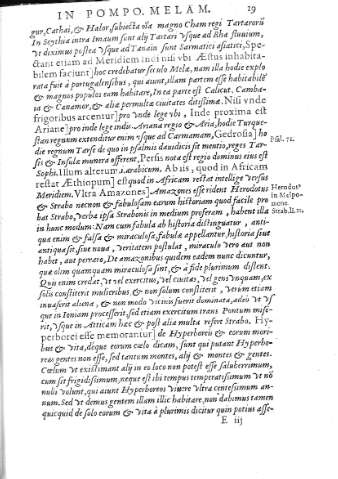 IN POMPO. MELAM. 19
gur, Cathai, & Halor subiecta oīa magno Cham regi Tartarorū
In Scythia intra Imaum sunt alij Tartari vsque ad Rha fluuium,
vt diximus postea vsque ad Tanain sunt Sarmatici asiatici, Spe-
ctant etiam ad Meridiem Indi nisi vbi Æstus inhabita-
bilem faciunt] hoc credebatur seculo Melæ, nam illa hodie explo
rata fuit à portugalensibus, qui aiunt, illam partem esse habitabilē
& magnos populos eam habitare, In ea parte est Calicut. Camba-
ia & Canamor, & aliæ permultæ ciuitates ditissimæ. Nisi vnde
frigoribus arcentur] pro vnde lege vbi, Inde proxima est
Ariane] pro inde lege indis Ariana regio & Aria, hodie Turque-
stan regnum extenditur enim vsque ad Carmamam, Gedrosia] ho
die regnum Tarse de quo in psalmis dauidicis fit mentio, reges Tar-
sis & Insulæ munera offerent, Persis nota est regio dominus eius est
Sophi. Illum alterum s. arabicum. Abiis, quod in Africam
restat Æthiopum] est quod in Africam restat intellige versus
Meridiem, Vltra Amazones] Amazones esse rident Herodotus
& Strabo necnon & fabulosam earum historiam quod facile pro
bat Strabo, verba ipsa Strabonis in medium proferam, habent illa
in hunc modum: Nam cum fabula ab historia distinguatur, anti-
qua enim & falsa & miraculosa fabulæ appellantur, historia siue
antiqua sit, siue noua, veritatem postulat, miraculo vero aut non
habet, aut perraro, De amazonibus quidem eadem nunc dicuntur,
quæ olim quamquam miraculosa sint, & à fide plurimum distent.
Quis enim credat, vt vel exercitus, vel ciuitas, vel gens vnquam, ex
solis constiterit mulieribus & non solum constiterit, verum etiam
inuaserit aliena, & non modo vicinis fuerit dominata, adeò vt vs
que in Ioniam processerit, sed etiam exercitum trans Pontum mise-
rit, vsque in Atticam hæc & post alia multa refert Strabo. Hy-
perborei esse memorantur] de Hyperboreis & eorum mori
bus & vita, deque eorum cœlo dicam, sunt qui putant Hyperbo-
reas gentes non esse, sed tantum montes, alij & montes & gentes.
Cœlum vt existimant alij in eo loco non potest esse saluberrimum,
cum sit frigidissimum, neque est ibi tempus temperatissimum vt nō
nulli volunt, qui aiunt Hyperboreos viuere vltra centesimum an-
num. Sed vt demus gentem illam illic habitare, non dabimus tamen
quicquid de solo eorum & vita à plurimis dicitur quin potius asse-
E iij
Psal. 71.
Herodot°
in Melpo-
mene.
Strab. li. 11.